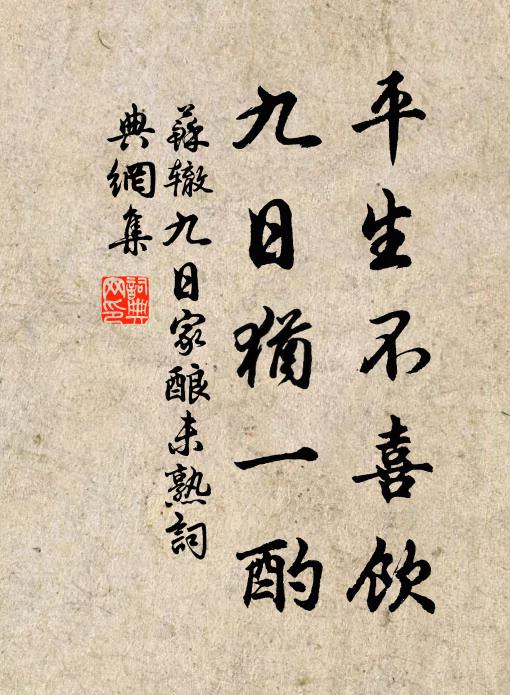 平生不喜飲
九日猶一酌
蘇辙九日家酿未熟詞
典網集
詞典
网印